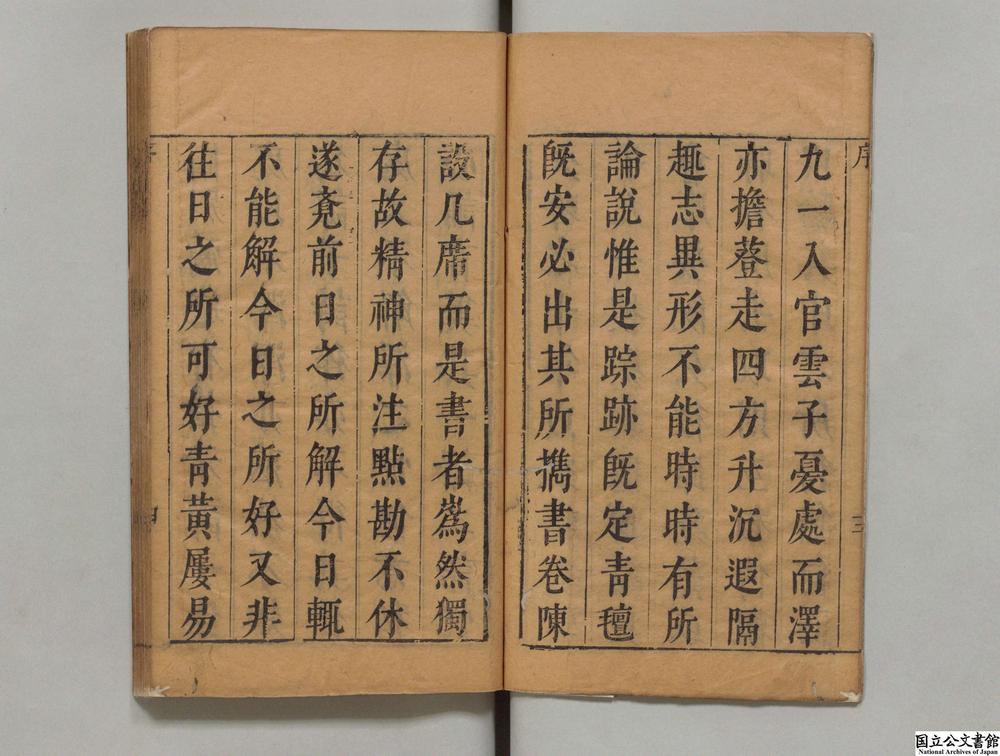 序
三
九一入官雲子憂處而澤
亦擔簦走四方升沉遐隔
趣志異形不能時時有所
論說惟是踪跡既定青氊
既安必出其所擕書卷陳
設几席而是書者嶲然獨
存故精神所注點勘不休
遂竟前日之所解今日輒
不能解今日之所好又非
徃日之所可好青黃屢易
序
四
国立公文書館
National Archives of Japan